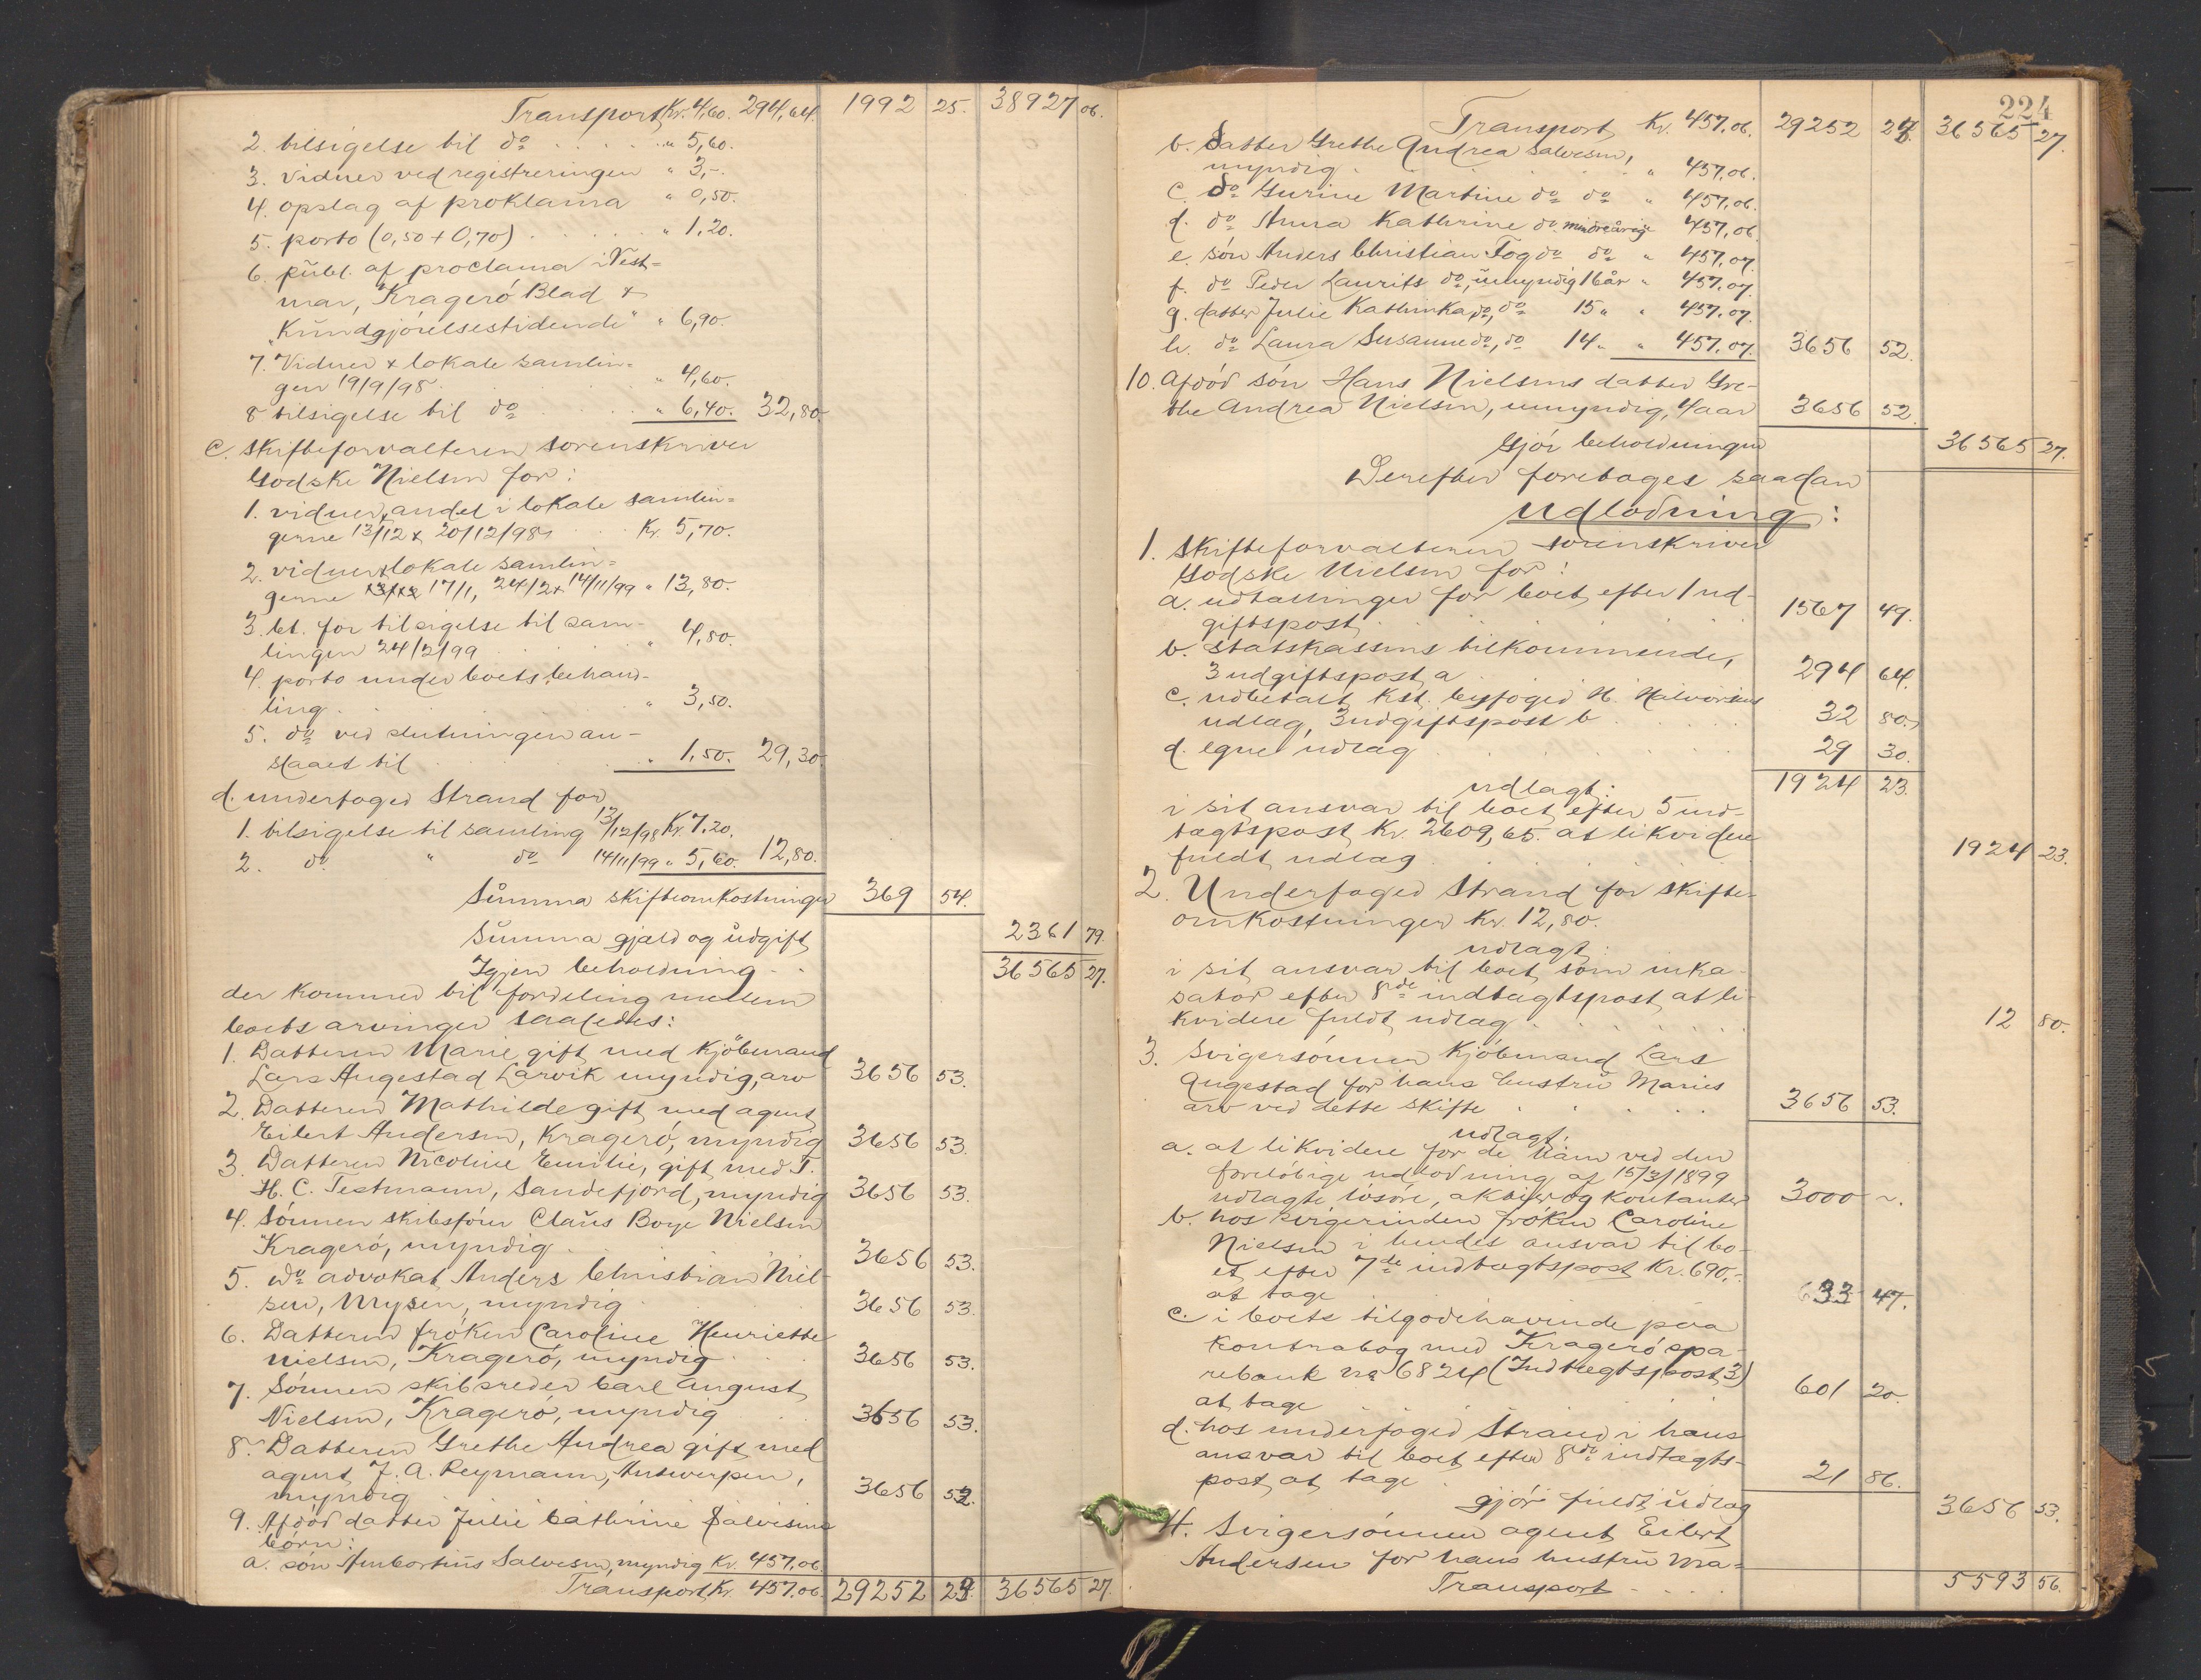 Transport Kr. 4,60. 294,64. 1992 25. 38927 06.
2. tilsigelse til do . . . . . " 5,60.
3. Vidner ved registreringen " 3,-.
4. opslag af proklama " 0,50.
5. porto (0,50 + 0,70) . . . . . " 1,20.
6. publ. af proclama i Vest=
mar, Kragerø Blad &
"Kundgjørelsestidende" " 6,90.
7. Vidner & lokale samlin=
gen 19/9/98 . . . . . " 4,60.
8 tilsigelse til do . . . . " 6,40. 32,80.
c. skifteforvalteren sorenskriver
Godske Nielsen for:
1. vidner, andel i lokale samlin=
gerne 13/12 & 20/12/98 . . Kr. 5,70.
2. vidner & lokale samlin=
gerne 17/1, 24/2 & 14/11/99 " 13,80.
3. bt. for tilsigelse til sam-
lingen 24/2/99 . . . " 4,80.
4. porto under boets behand-
ling . . . . . " 3,50.
5. do ved slutningen an-
slaaet til . . . . " 1,50. 29,30.
d. underfoged Strand for
1. tilsigelse til samling 13/12/98 Kr. 7,20.
2. do " do 14/11/99 " 5,60. 12,80.
Summa skifteomkostninger 369 54.
Summa gjæld og udgift 2361 79.
Igjen beholdning . . 36565 27.
der kommer til fordeling mellem
boets arvinger saaledes:
1. Datteren Marie gift med Kjøbmand
Lars Augestad Larvik myndig, arv 3656 53.
2. Datteren Mathilde gift med agent
Eilert Andersen, Kragerø, myndig 3656 53.
3. Datteren Nicoline Emilie, gift med T.
H. C. Testmann, Sandefjord, myndig 3656 53.
4. Sønnen skibsfører Claus Boye Nielsen
Kragerø, myndig . . 3656 53.
5. do advokat Anders Christian Niel-
sen, Mysen, myndig . 3656 53.
6. Datteren frøken Caroline Henriette
Nielsen, Kragerø, myndig . . . 3656 53.
7. Sønnen skibsreder Carl August
Nielsen, Kragerø, myndig . . 3656 53.
8. Datteren Grethe Andrea gift med
agent J. A. Reymann, Antwerpen,
myndig . . . 3656 52.
9. Afdød datter Julie Cathrine Salvesens
børn:
a. søn Ambortius Salvesen, myndig Kr. 457,06.
Transport Kr. 457,06. 29252 23. 36565 27.
224
Transport Kr. 457,06. 29252 23. 36565 27.
b. Datter Grethe Andrea Salvesen,
myndig . . . . . " 457,06.
c. do Gurine Martine do do " 457,06.
d. do Anna Kathrine do mindreårig 457,06.
e. søn Anders Christian Fog do do " 457,07.
f. do Peder Laurits do, umyndig 16 år " 457,07.
g. datter Julie Kathinka do, do 15 " " 457,07.
h. do Laura Susanne do, do 14 " " 457,07. 3656 52.
10. Afdød søn Hans Nielsens datter Gre-
the Andrea Nielsen, umyndig, 4 aar 3656 52.
Gjør beholdningen 36565 27.
Derefter foretages saadan
Udlodning:
1. Skifteforvalteren sorenskriver
Godske Nielsen for:
a. udtællinger for boet efter 1 ud-
giftspost . . . . . . 1567 49.
b. statskassens tilkommende,
3 udgiftspost a . . . . 294 64.
c. udbetalt kst. byfoged H. Halvorsens
udlæg, 3 udgiftspost b . . . . 32 80.
d. egne udlæg . . . . . 29 30.
1924 23.
udlagt:
i sit ansvar til boet efter 5 ind-
tægtspost Kr. 2609,65. at likvidere
fuldt udlæg . . . . . . 1924 23.
2. Underfoged Strand for skifte-
omkostninger Kr. 12,80.
udlagt:
i sit ansvar til boet som inka-
sator efter 8de indtægtspost at li-
kvidere fuldt udlæg . . . . . 12 80.
3. Svigersønnen Kjøbmand Lars
Augestad for hans hustru Maries
arv ved dette skifte . . . . . 3656 53.
udlagt:
a. at likvidere for de ham ved den
foreløbige udlodning af 15/3/1899
udlagte løsøre, aktier og kontanter 3000 -.
b. hos svigerinden frøken Caroline
Nielsen i hendes ansvar til bo-
et efter 7de indtægtspost Kr. 690,-
at tage . . . . . 33 47.
c. i boets tilgodehavende paa
kontrabog med Kragerø spa-
rebank no 6824 (Indtægtspost 3)
at tage . . . . . 601 20.
d. hos underfoged Strand i hans
ansvar til boet efter 8de indtægts-
post at tage . . . . . 21 86.
gjør fuldt udlæg 3656 53.
4. Svigersønnen agent Eilert
Andersen for hans hustru Ma=
Transport . . . . 5593 56.